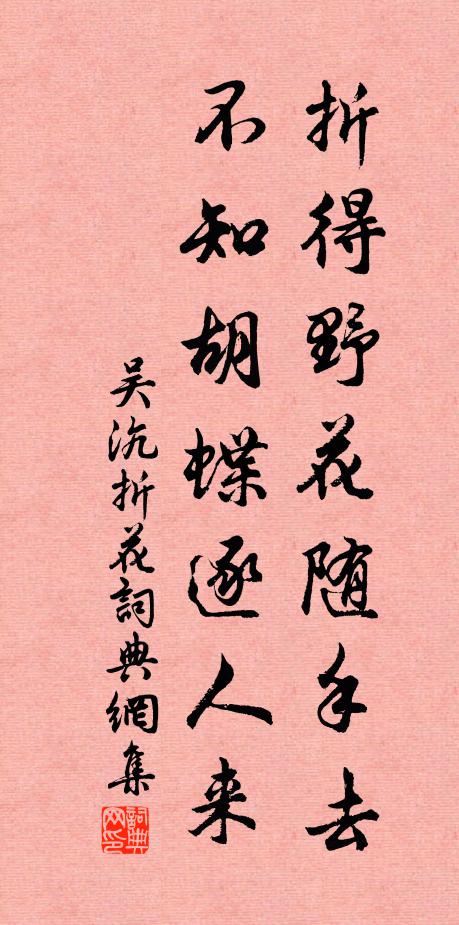 折得野花随手去
不知胡蝶逐人来
吴沉折花詞典網集
詞典网印